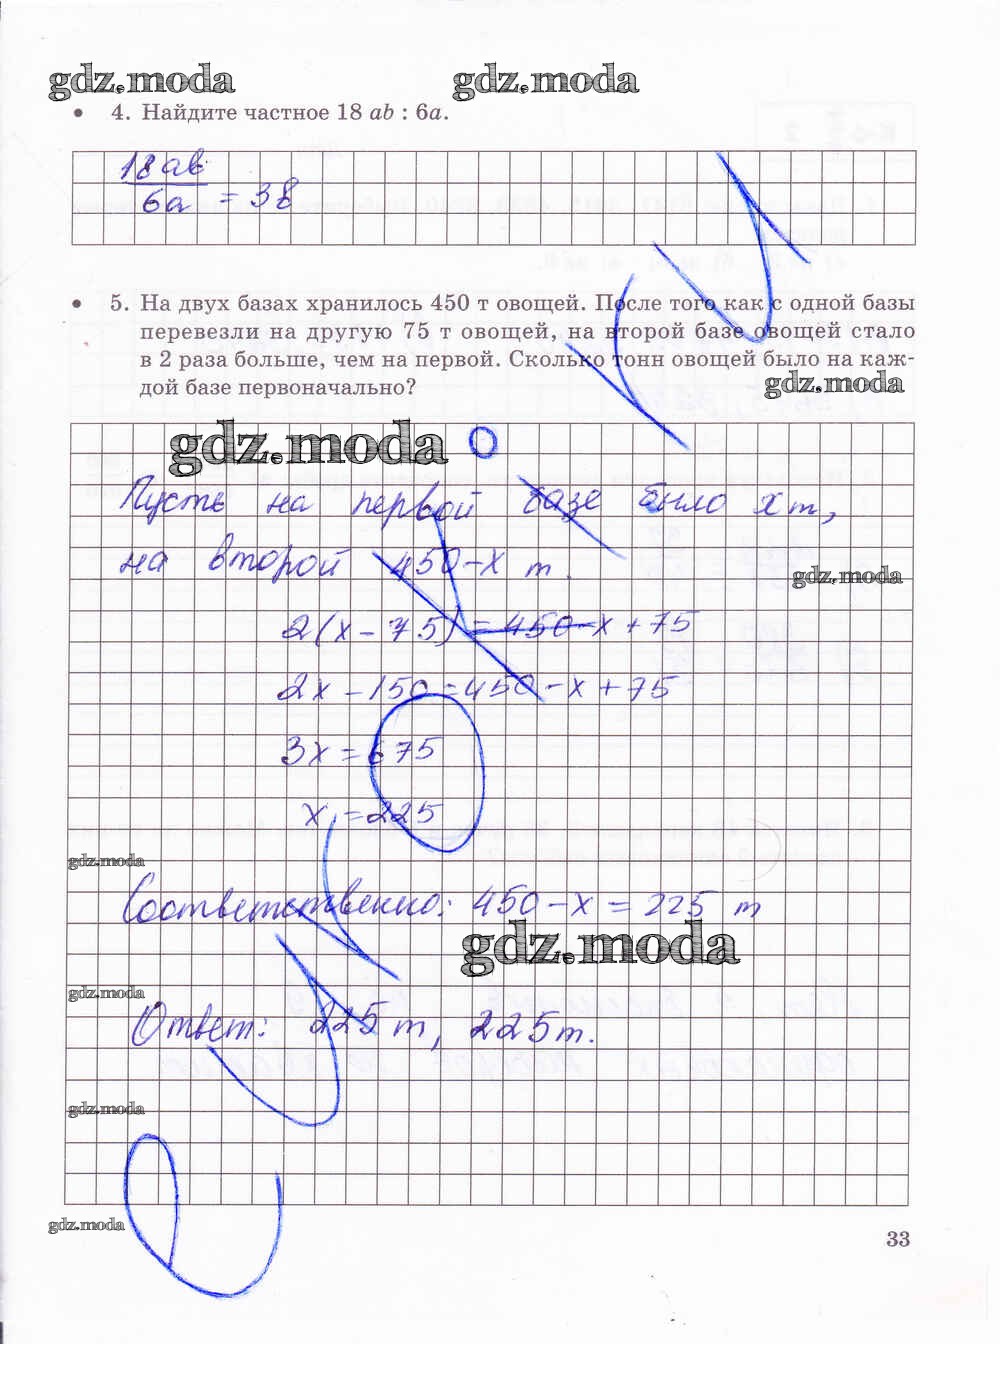 gdz.moda gdz.moda
• 4. Найдите частное 18 ab : 6a.
18ab
6a = 3в
• 5. На двух базах хранилось 450 т овощей. После того как с одной базы
перевезли на другую 75 т овощей, на второй базе овощей стало
в 2 раза больше, чем на первой. Сколько тонн овощей было на каж-
дой базе первоначально?
gdz.moda
gdz.moda
Пусть на первой базе было x т,
на второй 450-x т.
gdz.moda
2(x-75)=450-x+75
2x-150=450-x+75
3x=675
x=225
gdz.moda
Соответственно: 450-x=225 т
gdz.moda
gdz.moda
Ответ: 225 т, 225 т.
gdz.moda
gdz.moda
33